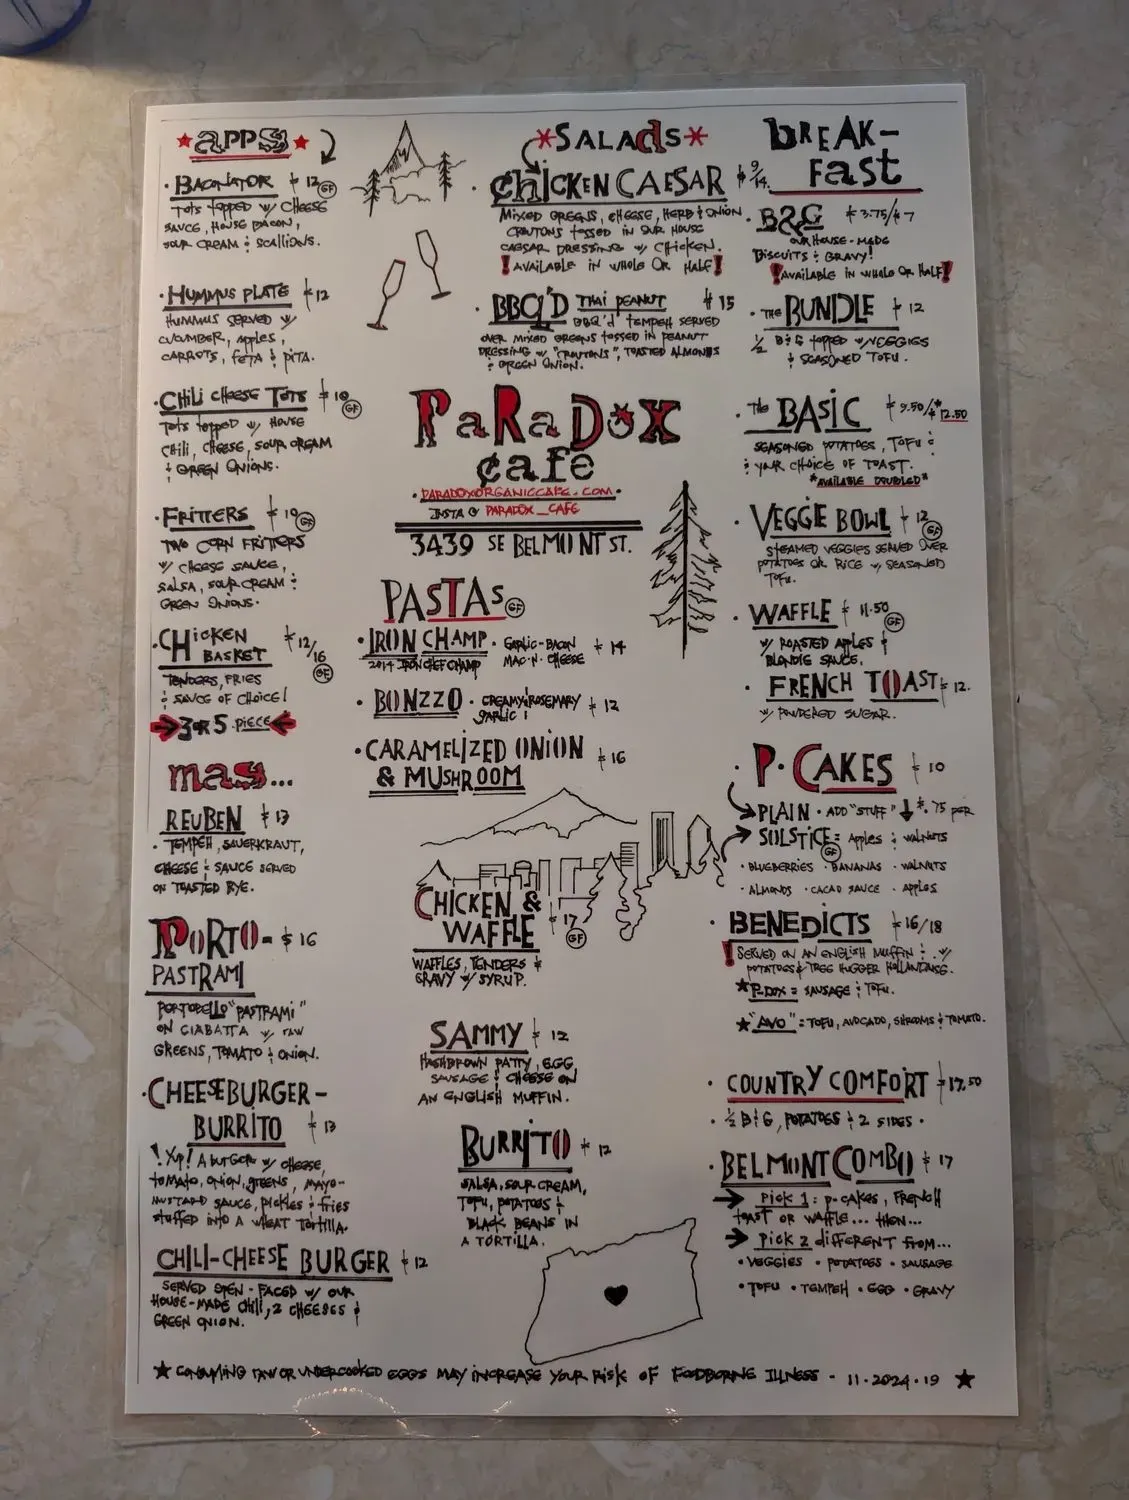 APPS
· BACNATOR $12 GF
TOTS TOPPED W/ CHEESE
SAUCE, HOUSE BACON,
SOUR CREAM & SCALLIONS.
· HUMMUS PLATE $12
HUMMUS SERVED W/
CUCUMBER, APPLES,
CARROTS, FETA & PITA.
· CHILI CHEESE TOTS $10 GF
TOTS TOPPED W/ HOUSE
CHILI, CHEESE, SOUR CREAM
& GREEN ONIONS.
· FRITTERS $10 GF
TWO CORN FRITTERS
W/ CHEESE SAUCE,
SALSA, SOUR CREAM &
GREEN ONIONS.
· CHICKEN BASKET $12/16 GF
TENDERS, FRIES
& SAUCE OF CHOICE!
3 OR 5 PIECE
MAS...
REUBEN $13
· TEMPEH, SAUERKRAUT,
CHEESE & SAUCE SERVED
ON TOASTED RYE.
PORTO- $16
PASTRAMI
PORTOBELLO "PASTRAMI"
ON CIABATTA W/ RAW
GREENS, TOMATO & ONION.
· CHEESEBURGER-
BURRITO $13
! YUP! A BURGER W/ CHEESE,
TOMATO, ONION, GREENS, MAYO-
MUSTARD SAUCE, PICKLES & FRIES
STUFFED INTO A WHEAT TORTILLA.
CHILI-CHEESE BURGER $12
SERVED OPEN-FACED W/ OUR
HOUSE-MADE CHILI, 2 CHEESES &
GREEN ONION.
SALADS
· CHICKEN CAESAR $9/14.
MIXED GREENS, CHEESE, HERB & ONION
CROUTONS TOSSED IN OUR HOUSE
CAESAR DRESSING W/ CHICKEN.
! AVAILABLE IN WHOLE OR HALF!
· BBQ'D THAI PEANUT $15
BBQ'd TEMPEH SERVED
OVER MIXED GREENS TOSSED IN PEANUT
DRESSING W/ "CROUTONS", TOASTED ALMONDS
& GREEN ONION.
PARADOX
CAFE
· PARADOXORGANICCAFE.COM ·
INSTA @ PARADOX_CAFE
3439 SE BELMONT ST.
PASTAS GF
· IRON CHAMP · GARLIC-BACON $14
2014 IRON CHEF CHAMP MAC-N-CHEESE
· BONZZO · CREAMY & ROSEMARY $12
GARLIC!
· CARAMELIZED ONION $16
& MUSHROOM
CHICKEN &
WAFFLE $17 GF
WAFFLES, TENDERS &
GRAVY W/ SYRUP.
SAMMY $12
HASHBROWN PATTY, EGG
SAUSAGE & CHEESE ON
AN ENGLISH MUFFIN.
BURRITO $12
SALSA, SOUR CREAM,
TOFU, POTATOES &
BLACK BEANS IN
A TORTILLA.
BREAK-
FAST
· B&G $3.75/$7
OUR HOUSE-MADE
BISCUITS & GRAVY!
! AVAILABLE IN WHOLE OR HALF!
· THE BUNDLE $12
1/2 B&G TOPPED W/ VEGGIES
& SEASONED TOFU.
· THE BASIC $9.50/$*12.50
SEASONED POTATOES, TOFU &
& YOUR CHOICE OF TOAST.
*AVAILABLE DOUBLED*
· VEGGIE BOWL $12 GF
STEAMED VEGGIES SERVED OVER
POTATOES OR RICE W/ SEASONED
TOFU.
· WAFFLE $11.50 GF
W/ ROASTED APPLES &
BLONDIE SAUCE.
· FRENCH TOAST $12.
W/ POWDERED SUGAR.
· P·CAKES $10
PLAIN · ADD "STUFF" ↓ $.75 PER
SOLSTICE: APPLES & WALNUTS GF
· BLUEBERRIES · BANANAS · WALNUTS
· ALMONDS · CACAO SAUCE · APPLES
· BENEDICTS $16/18
! SERVED ON AN ENGLISH MUFFIN & W/
POTATOES & TREE HUGGER HOLLANDAISE.
★ P-DOX = SAUSAGE & TOFU.
★ "AVO" = TOFU, AVOCADO, SHROOMS & TOMATO.
· COUNTRY COMFORT $17.50
· 1/2 B&G, POTATOES & 2 SIDES ·
· BELMONT COMBO $17
→ PICK 1: P-CAKES, FRENCH
TOAST OR WAFFLE... THEN...
→ PICK 2 DIFFERENT FROM...
· VEGGIES · POTATOES · SAUSAGE
· TOFU · TEMPEH · EGG · GRAVY
★ CONSUMING RAW OR UNDERCOOKED EGGS MAY INCREASE YOUR RISK OF FOODBORNE ILLNESS - 11·2024·19 ★